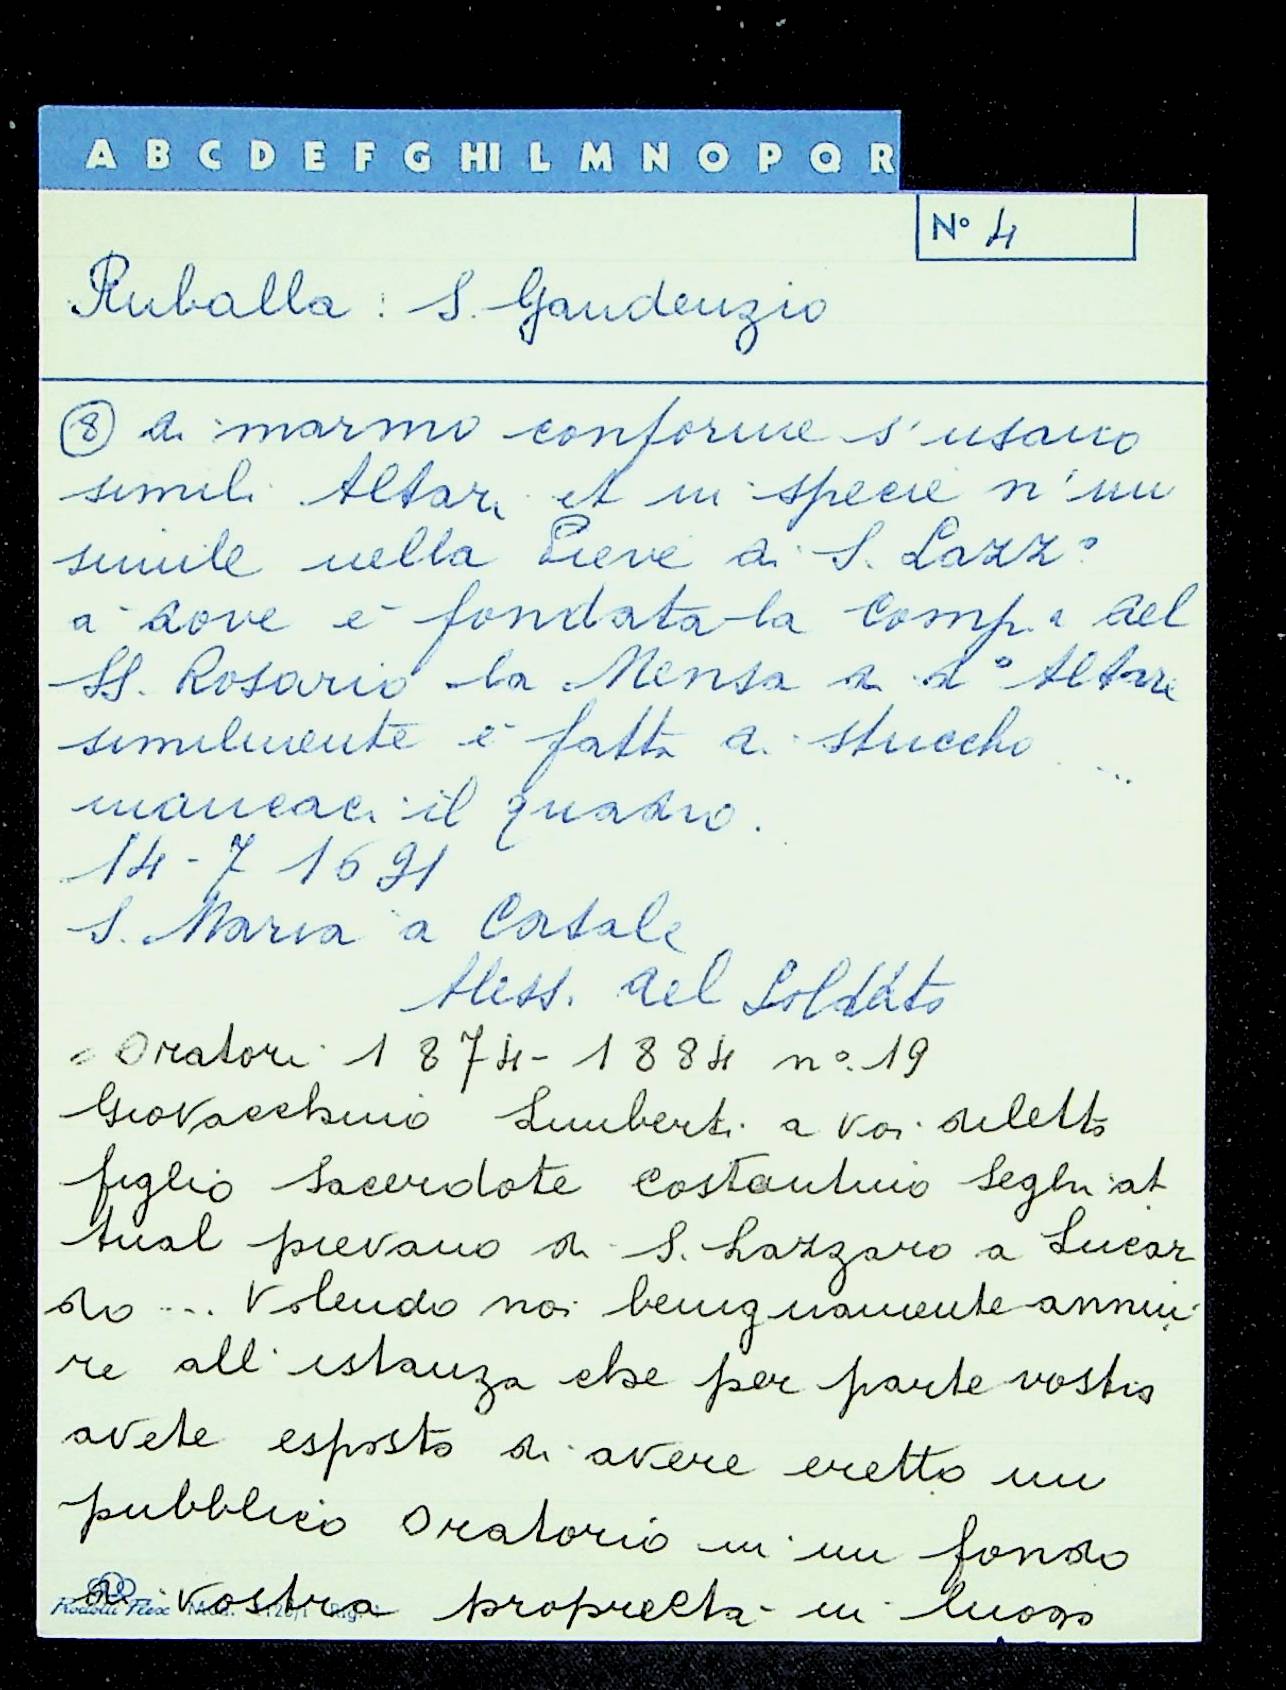 A B C D E F G HI L M N O P Q R
N° 4
Ruballa : S. Gaudenzio
(8) di marmo conforme s'usano
simili Altari et in specie n'un
simile nella Pieve di S. Lazz°
a dove è fondata la Comp.a del
SS. Rosario la Mensa di d° Altare
similmente è fatta di stuccho ...
mancaci il quadro.
14-7 1691
S. Maria a Casale
Aless. del Soldato
= Oratori 1874-1884 n°. 19
Giovacchino Limberti a voi diletto
figlio Sacerdote Costantino Seghi at
tual pievano di S. Lazzaro a Lucar
do ... Volendo noi benignamente annui
re all'istanza che per parte vostra
avete esposto di avere eretto un
pubblico Oratorio in un fondo
di vostra proprietà in luogo